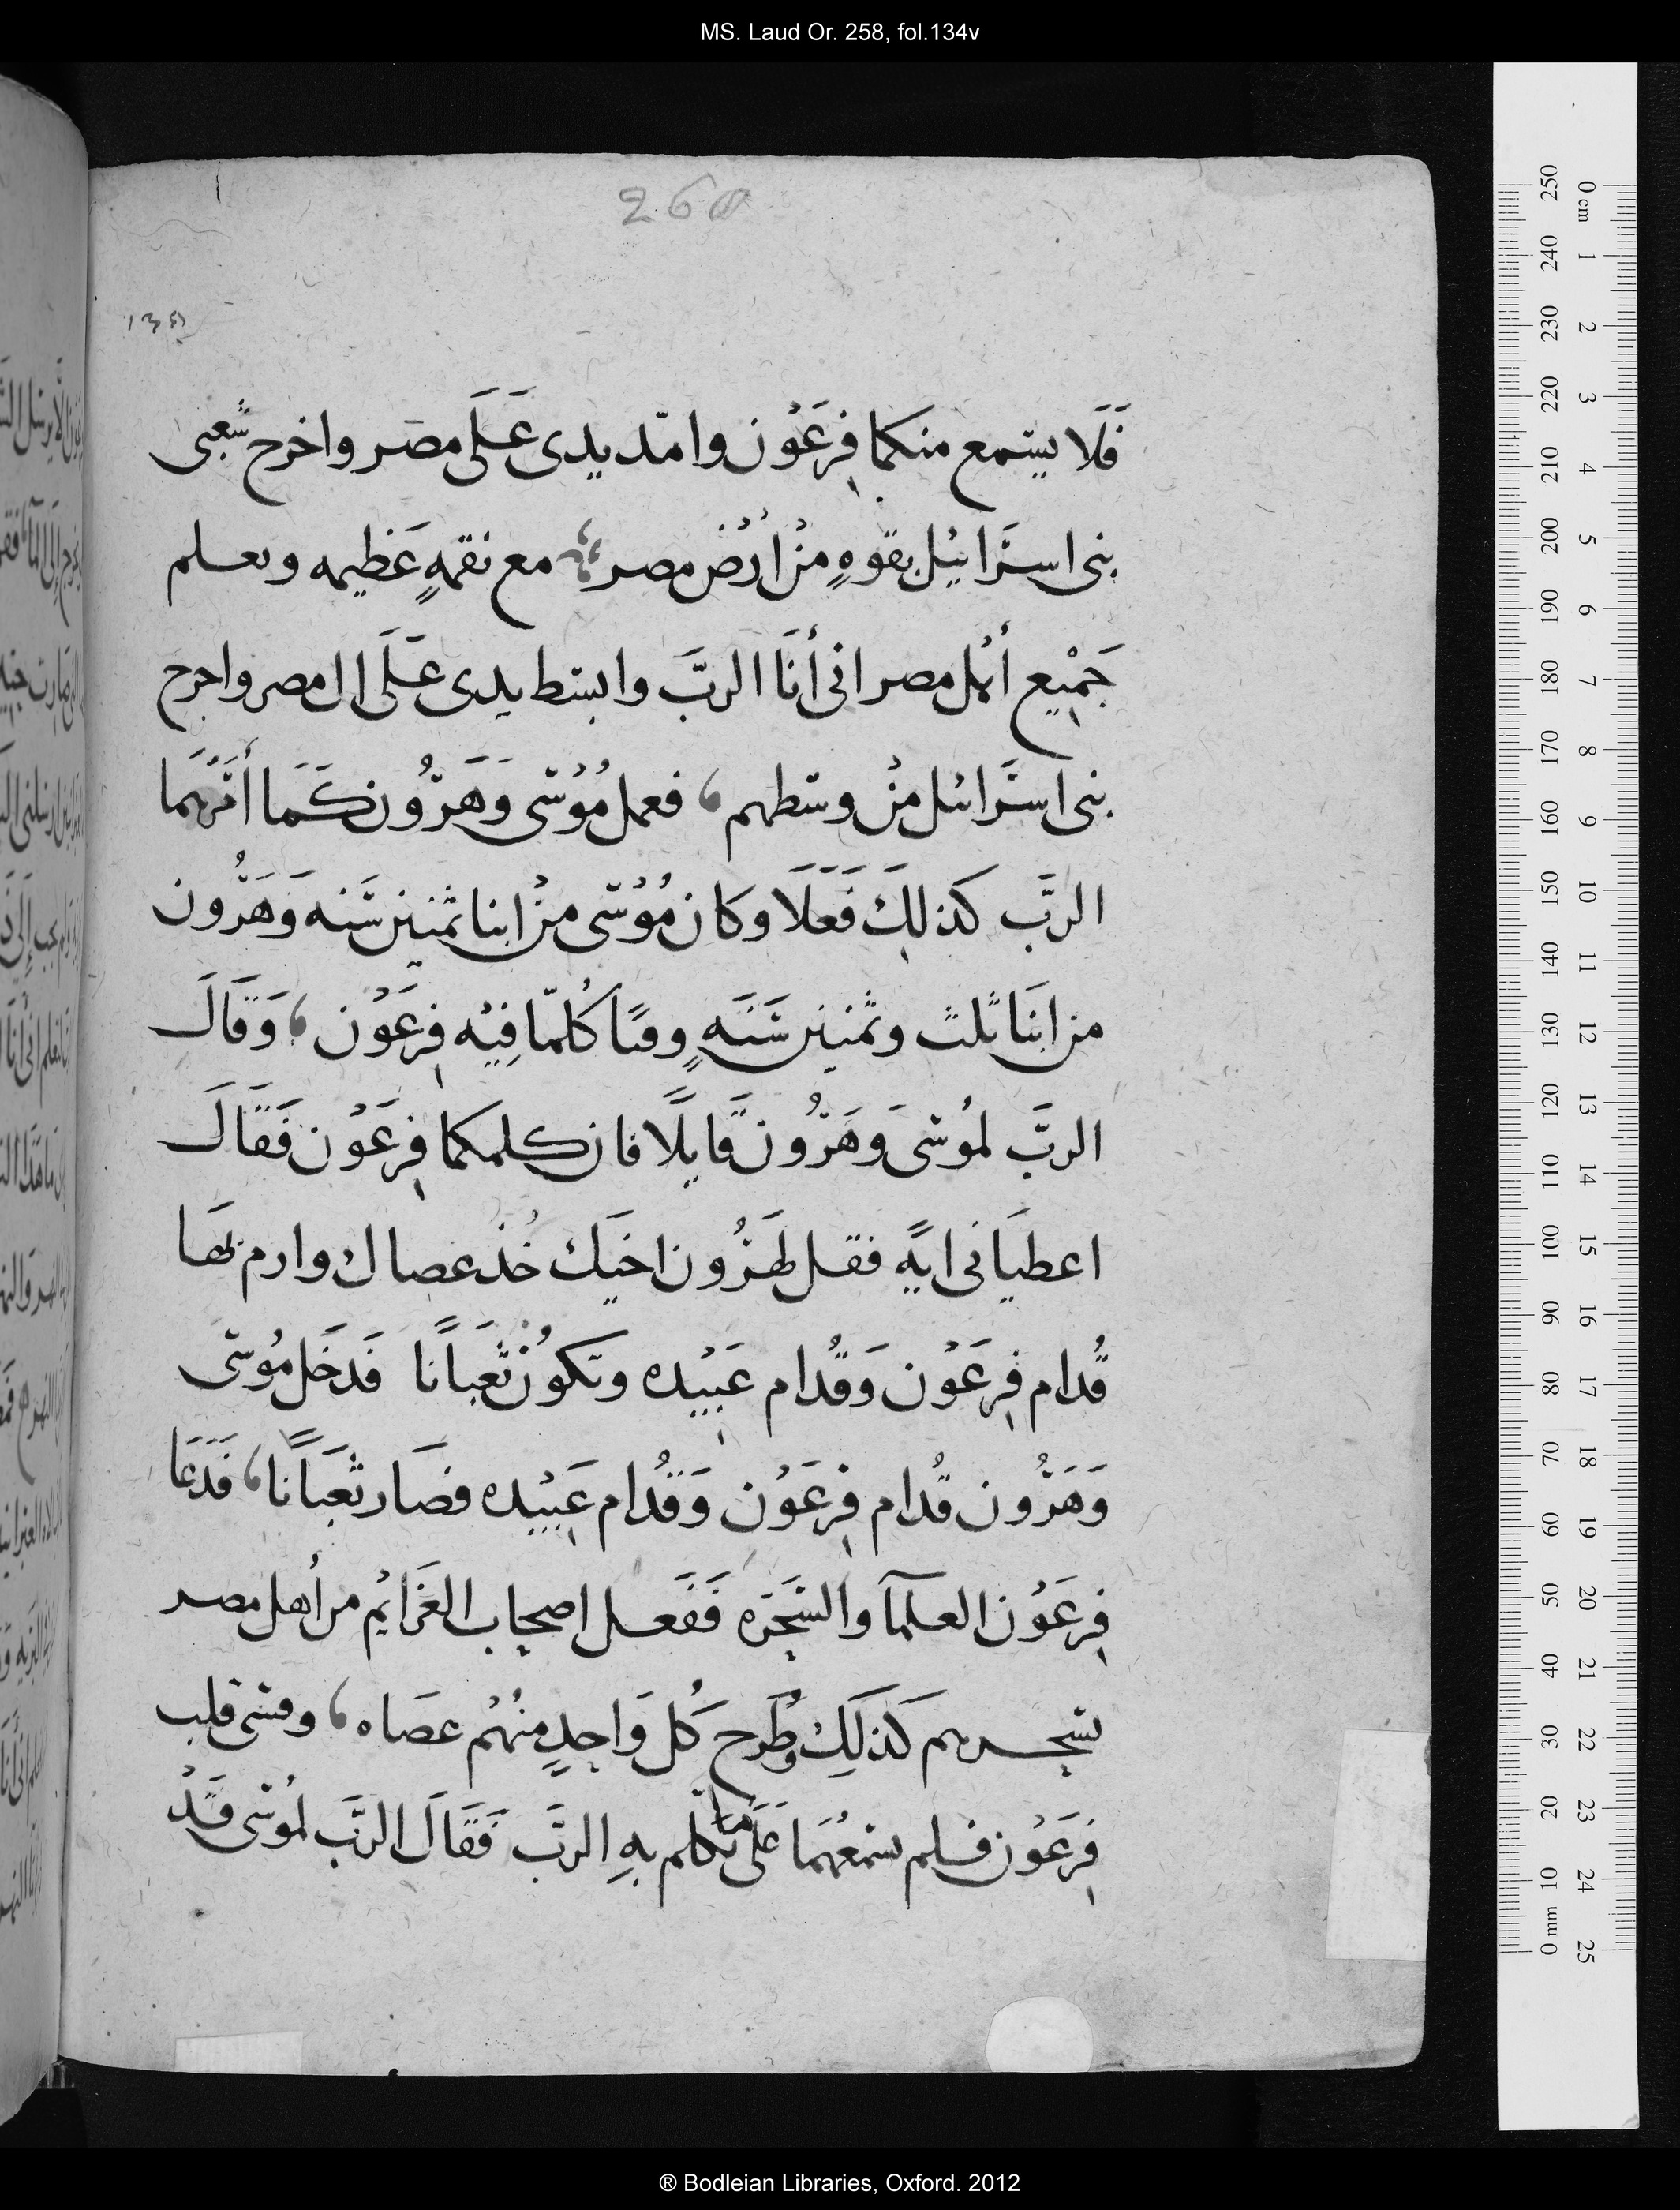 MS. Laud Or. 258, fol.134v
260
فَلَا يستمع منكما فِرعَوْن وامتد يدى عَلَى مصر واخرج شعبى
بنى اسرَائيل بقوهٍ مِنْ ارْض مصر مع نقمهٍ عَظيمه ويعلم
جَميْع أهْل مصر انى أنَا الربَّ وابسط يدى عَلَى ال مصر واخرج
بنى اسرَائيل مِنْ وسطهم فعمل مُوْسَى وَهَرُون كَمَا أمَرَهُمَا
الربَّ كَذلِكَ فَعَلَا وكان مُوْسَى مِنْ ابنا ثمنين سَنه وَهَرُون
من ابنَا ثلث وثمنين سَنَهٍ وقتًا كلمَا فِيْه فِرعَوْن وَقَالَ
الربَّ لمُوسَى وَهَرُون قَايلًا فان كلمكما فِرعَوْن فَقَالَ
اعطيَانى ايَّه فقل لهَرُون اخيَك خُذ عصاك وارم بهَا
قُدام فِرعَوْن وَقُدام عَبيْده وتكوُنْ ثعَبَانًا فَدخَل مُوسَى
وَهَرُون قُدام فِرعَوْن وَقُدام عَبيْده فصَار ثعَبَانًا فَدَعَا
فِرعَوْن العلمآ والسَحَرَه فَفَعل اصحاب العَزَايم من أهل مصر
بسحرهم كَذلِكَ وطَرح كُل وَاحدٍ منهُم عصَاه وقسى قلب
فِرعَوْن فلم يسمعُهمَا عَلَى مَا تكلم بهِ الربَّ فَقَالَ الربَّ لمُوسَى قَدْ
0 cm 1 2 3 4 5 6 7 8 9 10 11 12 13 14 15 16 17 18 19 20 21 22 23 24 25
250 240 230 220 210 200 190 180 170 160 150 140 130 120 110 100 90 80 70 60 50 40 30 20 10 0 mm
® Bodleian Libraries, Oxford. 2012